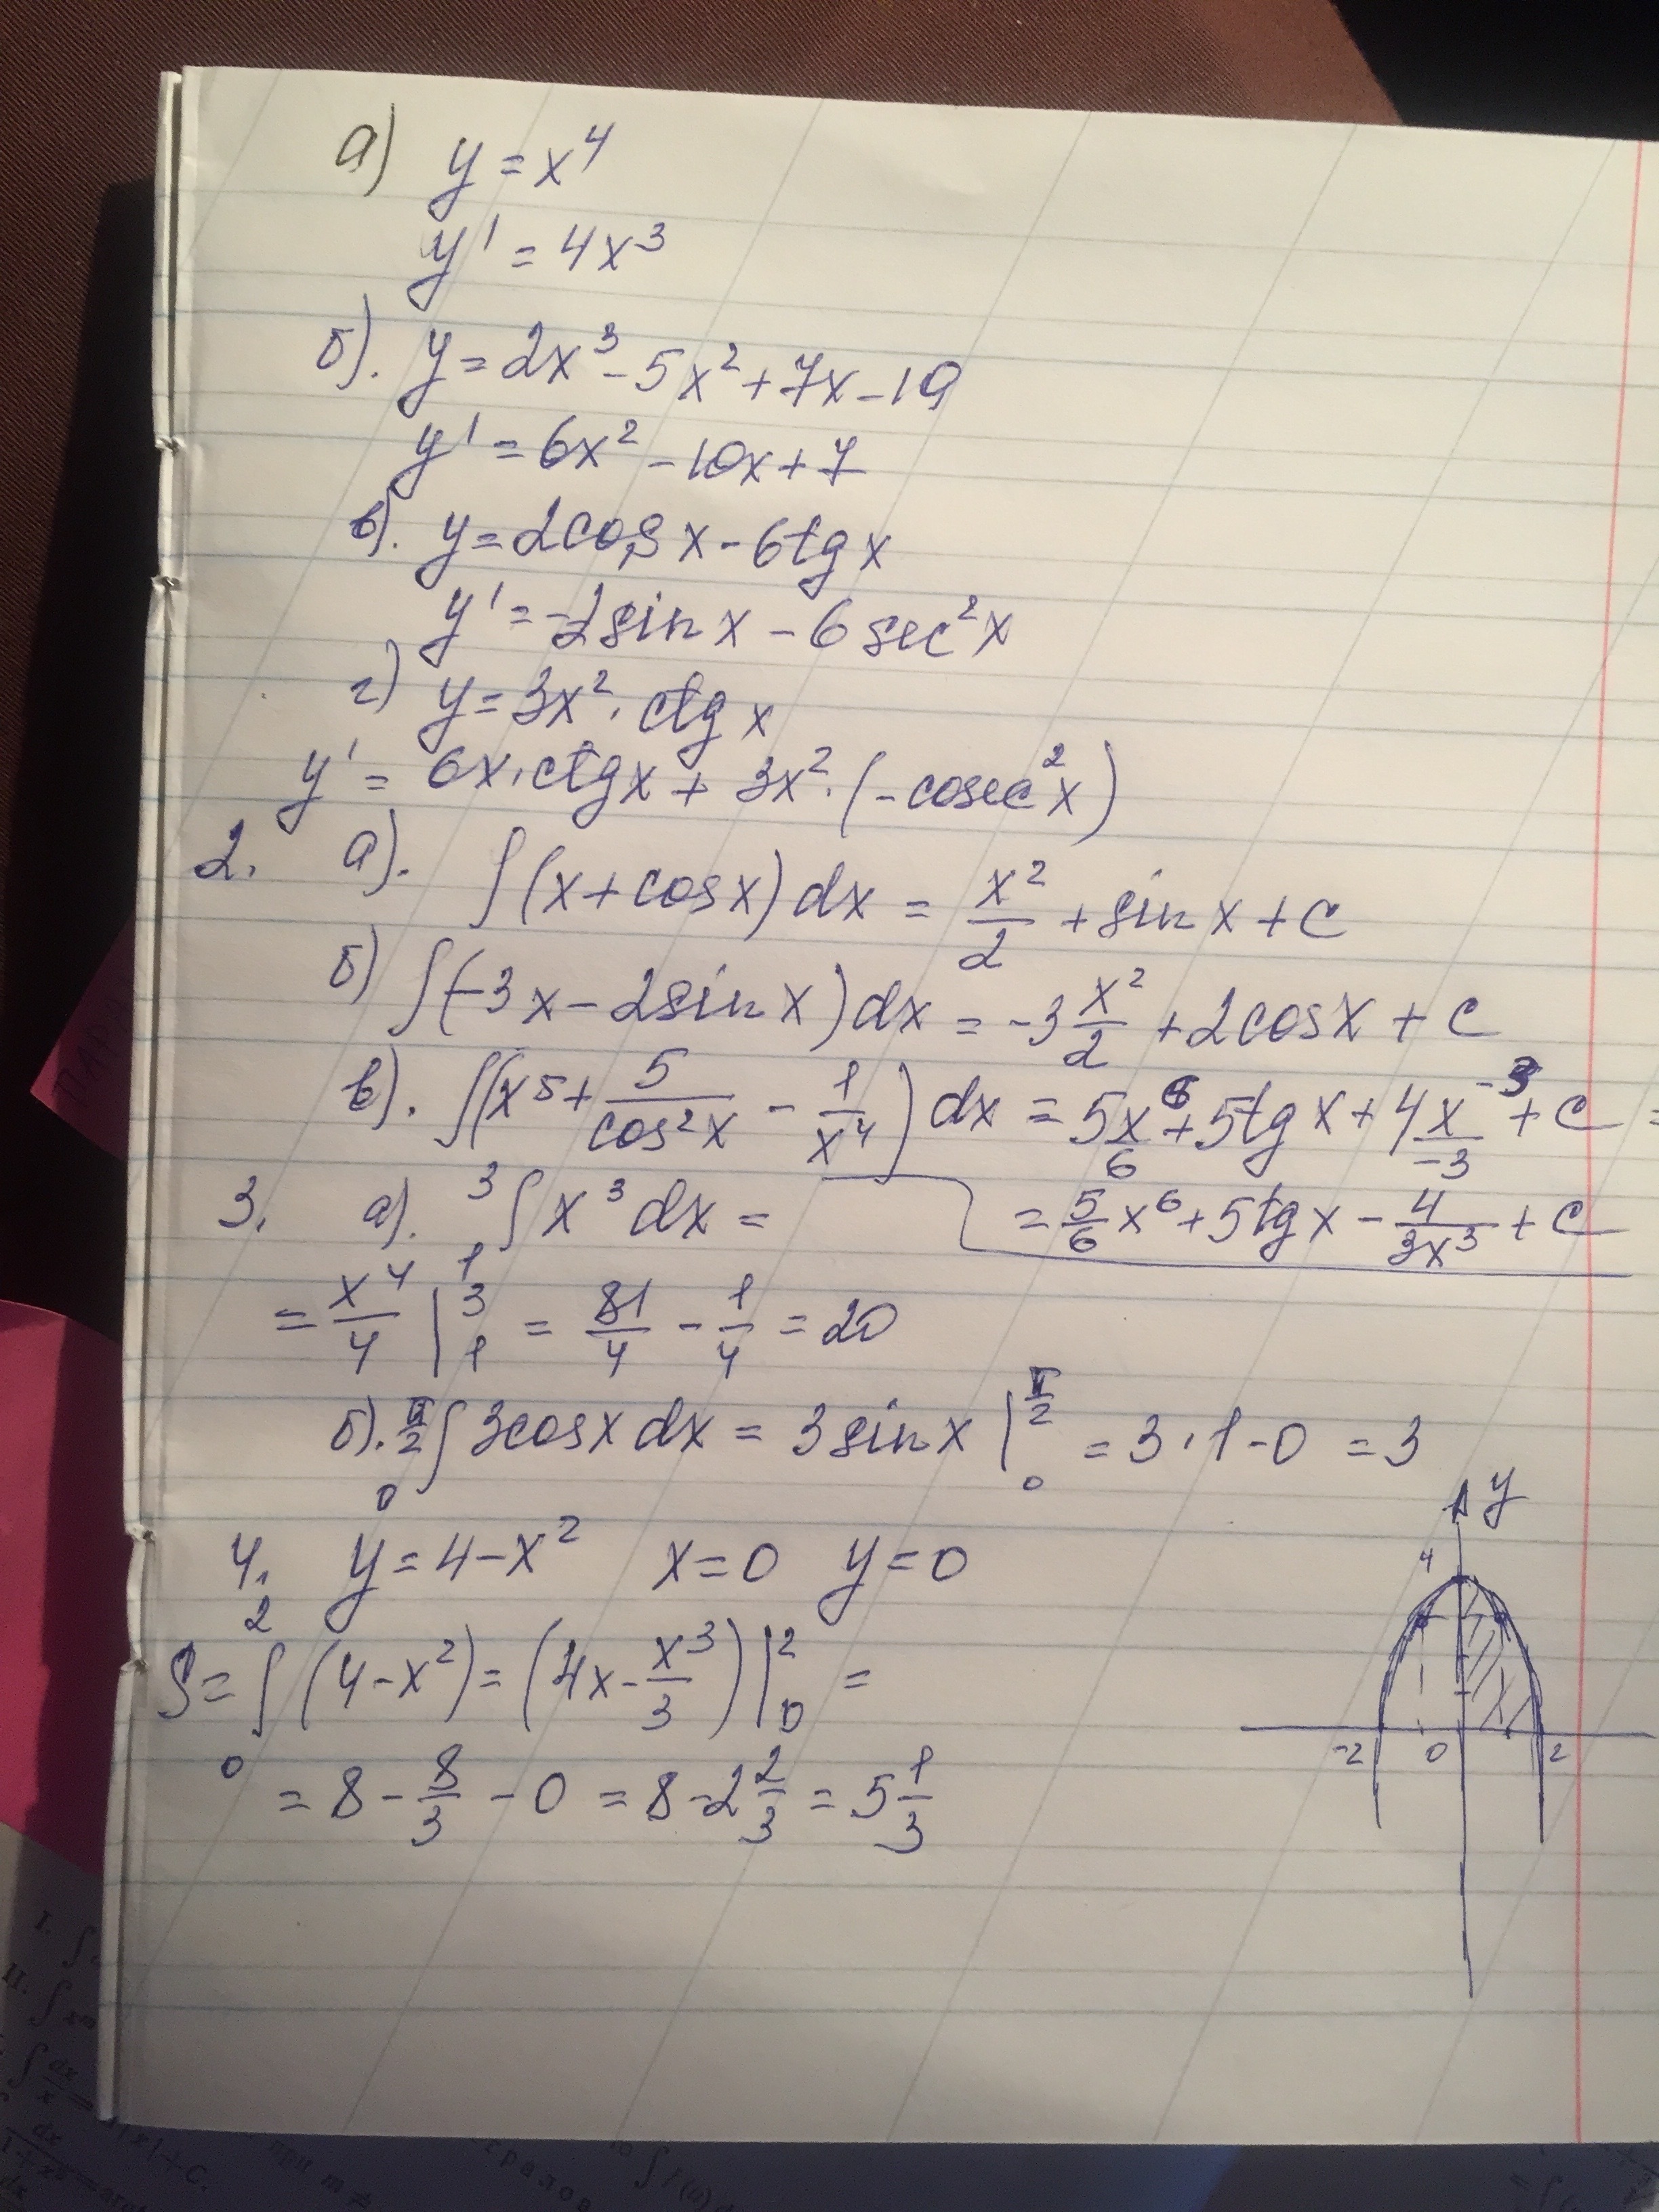 а) y = x⁴
y' = 4x³
б). y = 2x³ - 5x² + 7x - 19
y' = 6x² - 10x + 7
в). y = 2cos x - 6tg x
y' = -2sin x - 6 sec² x
г) y = 3x² · ctg x
y' = 6x · ctg x + 3x² · (-cosec² x)
2. а). ∫(x + cos x) dx = x²/2 + sin x + c
б) ∫(-3x - 2sin x) dx = -3 x²/2 + 2cos x + c
в). ∫(x⁵ + 5/cos²x - 1/x⁴) dx = 5x⁶/6 + 5tg x + 4x⁻³/-3 + c =
= 5/6 x⁶ + 5tg x - 4/3x³ + c
3. а). ³∫₁ x³ dx =
= x⁴/4 |₁³ = 81/4 - 1/4 = 20
б). π/2 ∫ 0 3cos x dx = 3 sin x | 0 π/2 = 3 · 1 - 0 = 3
4. y = 4 - x² x = 0 y = 0
S = ∫₀² (4 - x²) = (4x - x³/3) |₀² =
= 8 - 8/3 - 0 = 8 - 2 2/3 = 5 1/3
y
4
-2 0 2